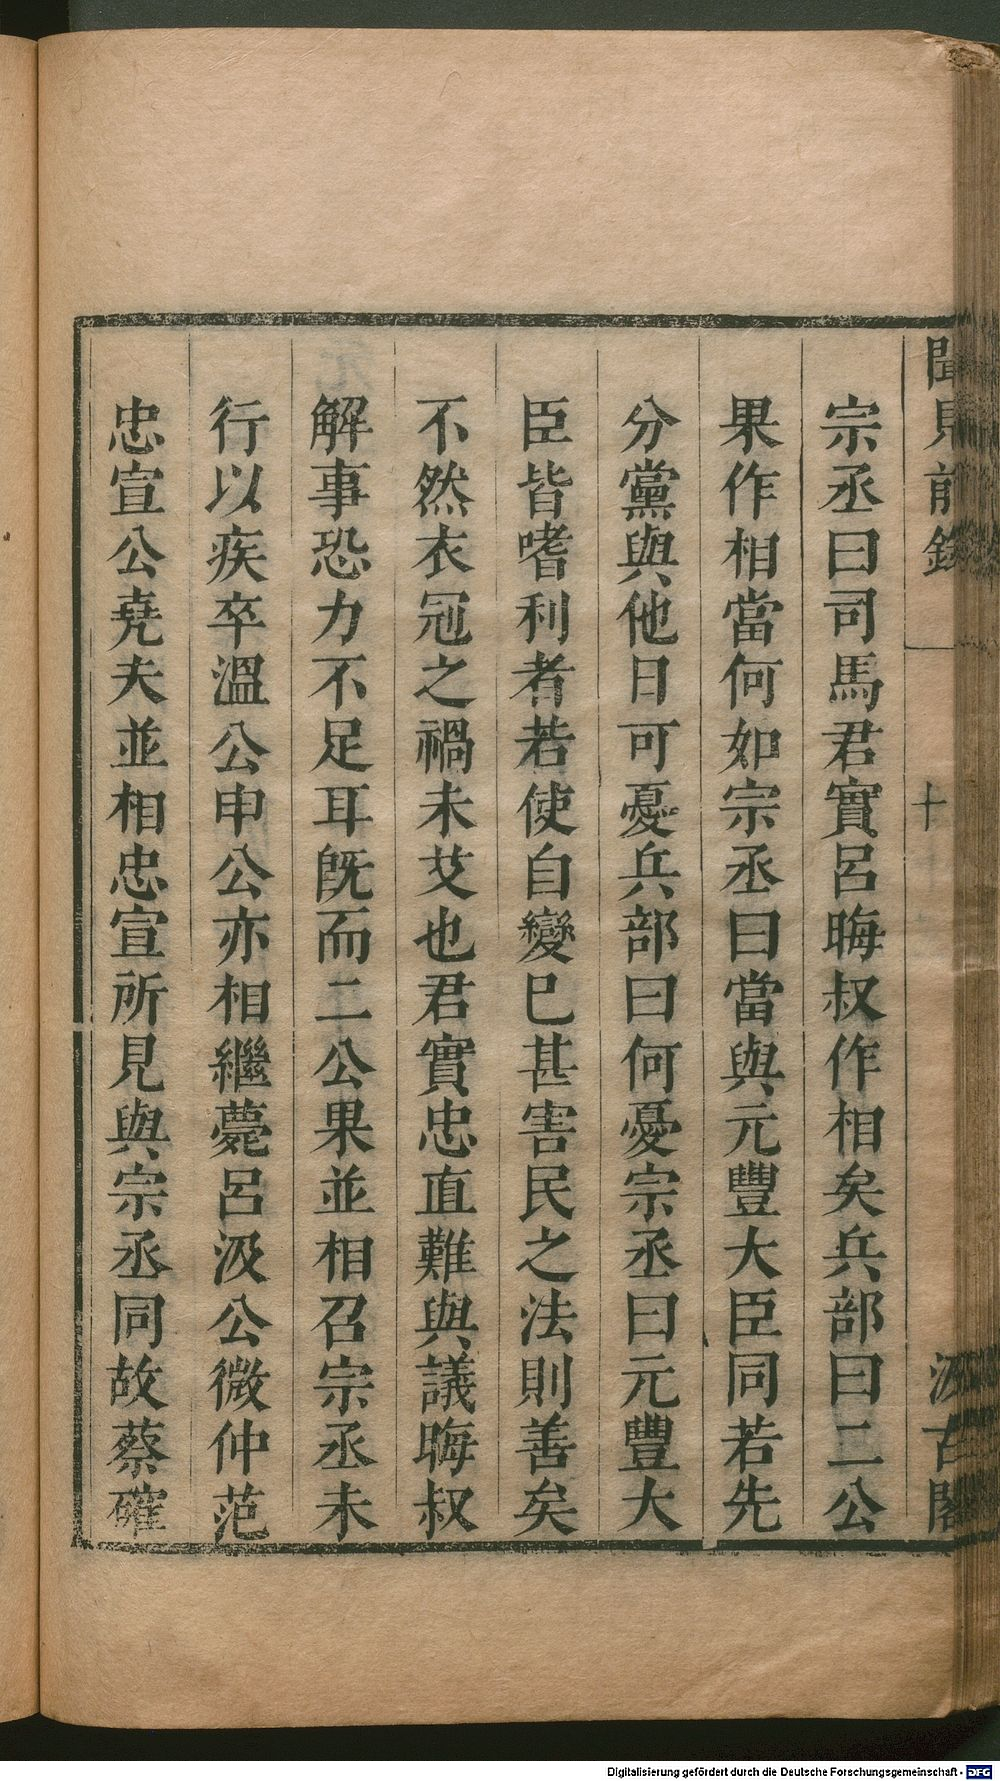 聞見前錄 十 汲古閣
宗丞曰司馬君實呂晦叔作相矣兵部曰二公
果作相當何如宗丞曰當與元豐大臣同若先
分黨與他日可憂兵部曰何憂宗丞曰元豐大
臣皆嗜利者若使自變巳甚害民之法則善矣
不然衣冠之禍未艾也君實忠直難與議晦叔
解事恐力不足耳旣而二公果並相召宗丞未
行以疾卒溫公申公亦相繼薨呂汲公微仲范
忠宣公堯夫並相忠宣所見與宗丞同故蔡確
Digitalisierung gefördert durch die Deutsche Forschungsgemeinschaft - DFG